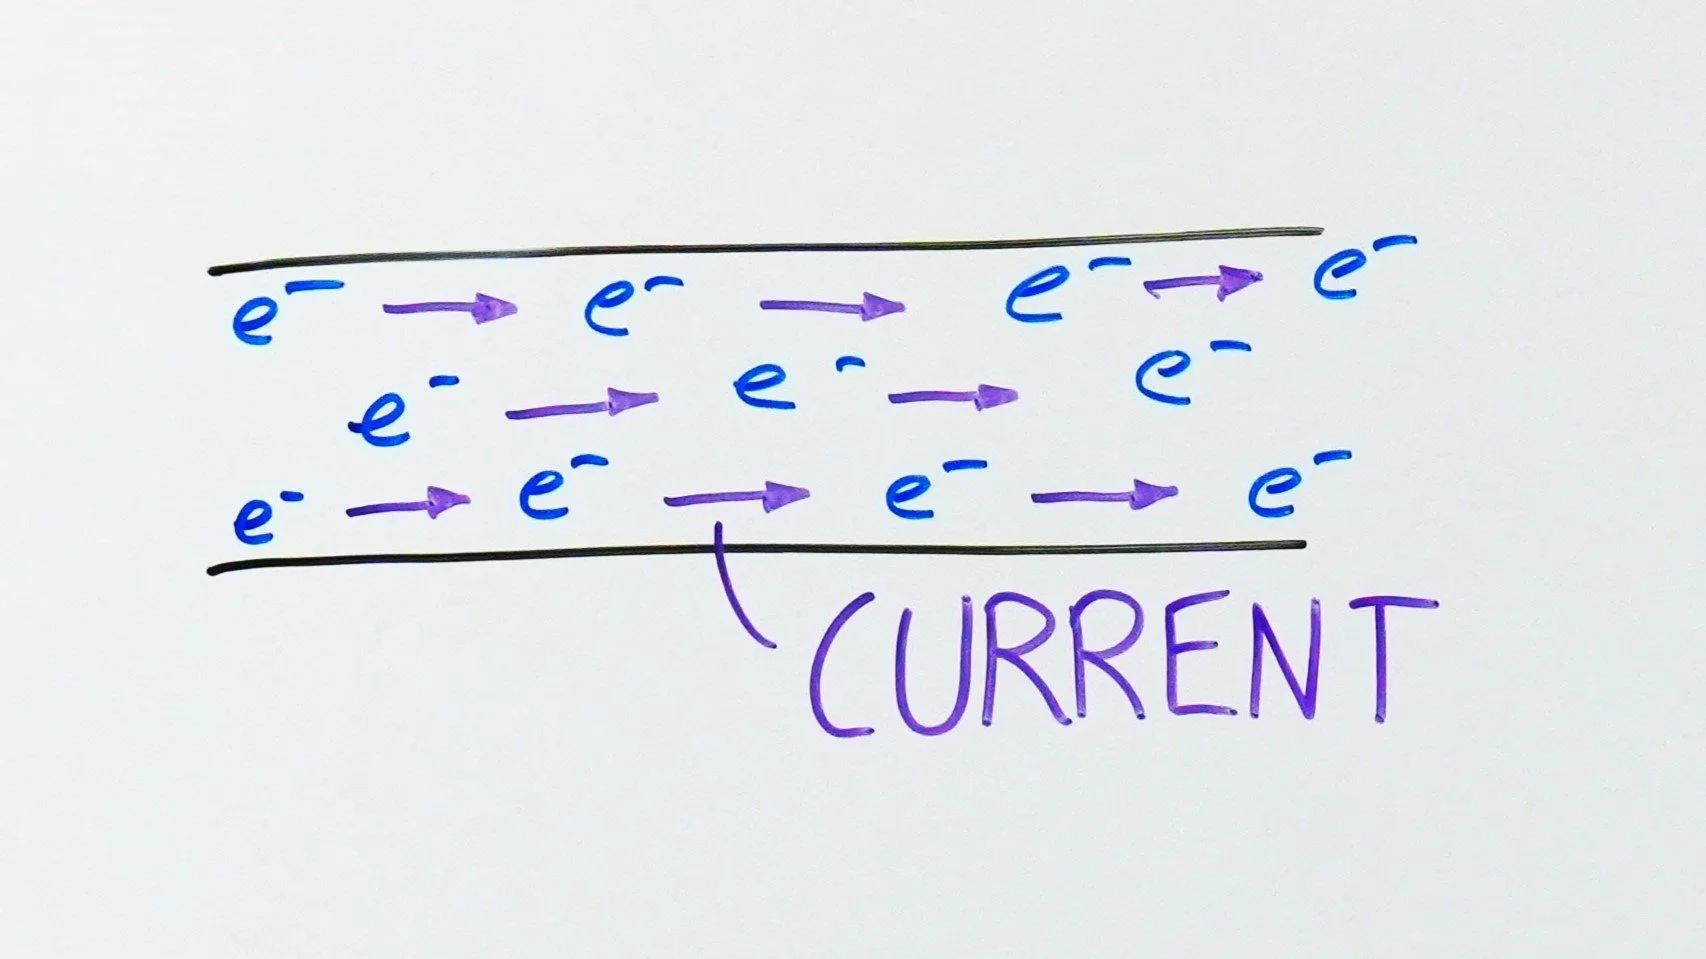 e⁻ → e⁻ → e⁻ → e⁻
e⁻ → e⁻ → e⁻
e⁻ → e⁻ → e⁻ → e⁻
CURRENT